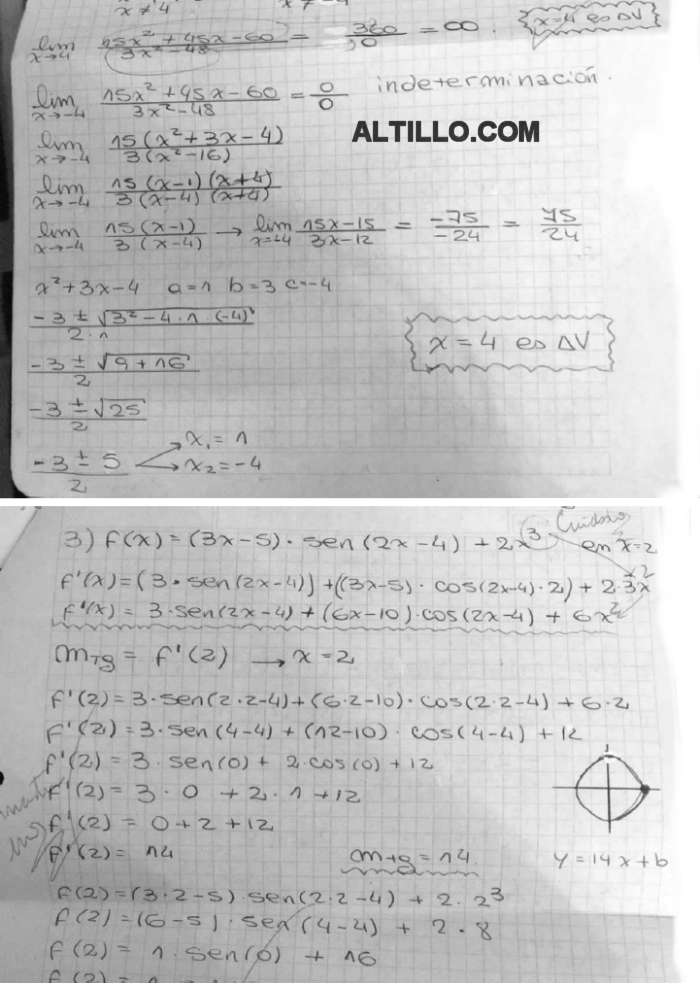 x ≠ 4
lim x→4 45x²+45x-60 / 3x²-48 = 360 / 0 = ∞. x=4 es ΔV
lim x→-4 15x²+45x-60 / 3x²-48 = 0/0 indeterminación.
lim x→-4 15(x²+3x-4) / 3(x²-16)
ALTILLO.COM
lim x→-4 15(x-1)(x+4) / 3(x-4)(x+4)
lim x→-4 15(x-1) / 3(x-4) → lim x=-4 15x-15 / 3x-12 = -75 / -24 = 75 / 24
x²+3x-4 a=1 b=3 c=-4
-3 ± √3²-4·1·(-4) / 2·1
x=4 es ΔV
-3 ± √9+16 / 2
-3 ± √25 / 2
-3 ± 5 / 2 x₁=1 x₂=-4
3) f(x)=(3x-5)·sen(2x-4)+2x³ en x=2
f'(x)=(3·sen(2x-4))+((3x-5)·cos(2x-4)·2)+2·3x²
f'(x)=3·sen(2x-4)+(6x-10)·cos(2x-4)+6x²
mtg=f'(2) → x=2
f'(2)=3·sen(2·2-4)+(6·2-10)·cos(2·2-4)+6·2
f'(2)=3·sen(4-4)+(12-10)·cos(4-4)+12
f'(2)=3·sen(0)+2·cos(0)+12
f'(2)=3·0+2·1+12
f'(2)=0+2+12
f'(2)=14 mtg=14. y=14x+b
f(2)=(3·2-5)·sen(2·2-4)+2·2³
f(2)=(6-5)·sen(4-4)+2·8
f(2)=1·sen(0)+16